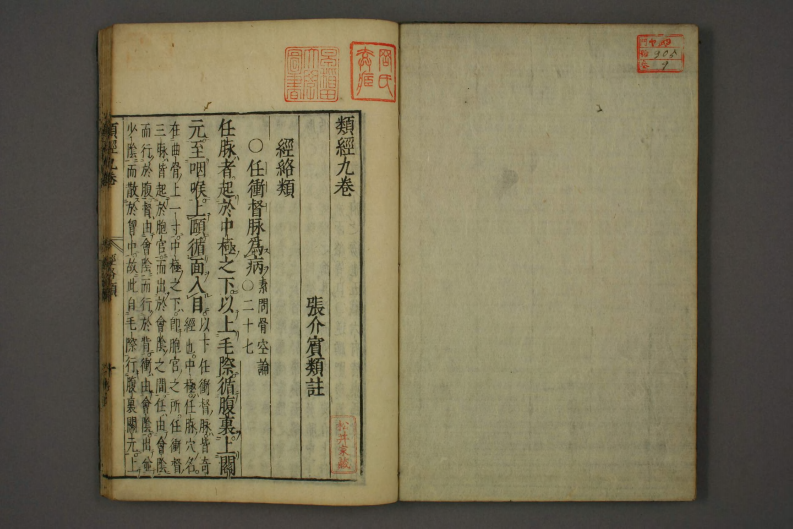 類經九卷
張介賓類註
經絡類
○任衝督脉爲病
素問骨空論
○二十七
任脉者起於中極之下以上毛際循腹裏上關
元至咽喉上頤循面入目
以下任衝督脉皆奇
經也中極任脉穴名
在曲骨上一寸中極之下即胞宮之所任衝督
三脉皆起於胞宮而出於會陰之間任由會陰
而行於腹督由會陰而行於背衝由會陰出並
少陰而散於胷中故此自毛際行腹裏關元上
類經九卷
經絡類
905
9